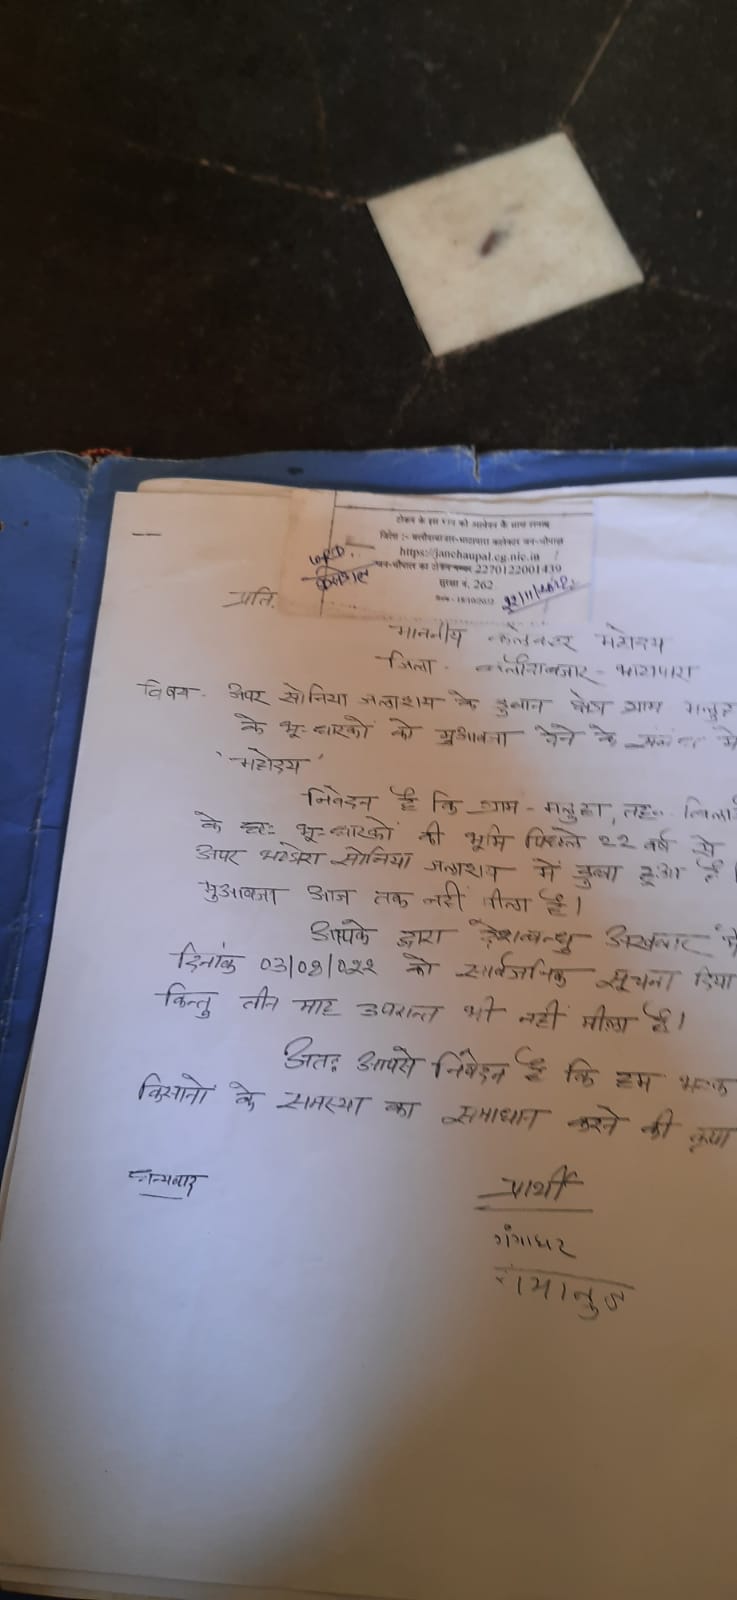 टोकन के इस भाग को आवेदन के साथ लगावें
जिला :- बलौदाबाजार-भाटापारा कलेक्टर जन-चौपाल
https://janchaupal.cg.nic.in
जन-चौपाल का टोकन नम्बर 2270122001439
सुरक्षा नं. 262
22/11/2022
प्रति,
माननीय कलेक्टर महोदय
जिला - बलौदाबाजार - भाटापारा
विषय - अपर सोनिया जलाशय के डुबान क्षेत्र ग्राम
के भू-धारकों को मुआवजा देने के संबंध में
'महोदय'
निवेदन है कि ग्राम - तह-
के छः भू-धारकों की भूमि पिछले 22 वर्ष से
अपर सोनिया जलाशय में डुबा हुआ है
मुआवजा आज तक नहीं मीला है।
आपके द्वारा देशबन्धु अखबार में
दिनांक को सार्वजनिक सूचना दिया
किन्तु तीन माह उपरान्त भी नहीं मीला है।
अतः आपसे निवेदन है कि हम
किसानों के समस्या का समाधान करने की कृपा
धन्यवाद
प्रार्थी
गंगाधर
रामानुज